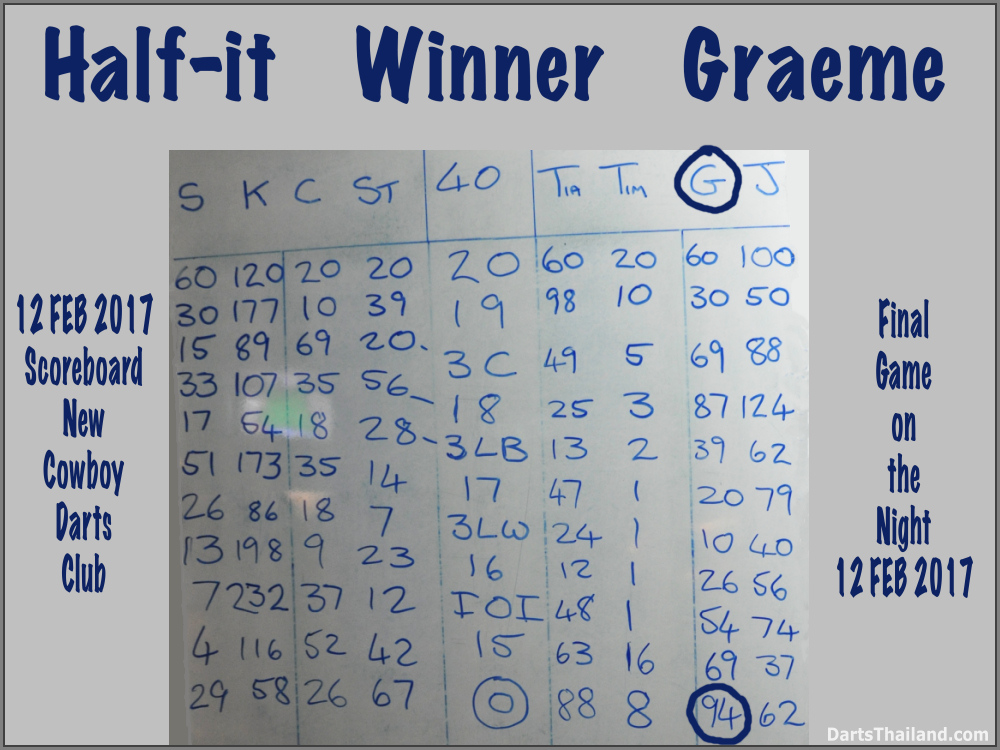 Half-it Winner Graeme
12 FEB 2017
Scoreboard
New
Cowboy
Darts
Club
S K C ST 40 TIA TIM G J
60 120 20 20 20 60 20 60 100
30 177 10 39 19 98 10 30 50
15 89 69 20 3C 49 5 69 88
33 107 35 56 18 25 3 87 124
17 54 18 28 3LB 13 2 39 62
51 173 35 14 17 47 1 20 79
26 86 18 7 3LW 24 1 10 40
13 198 9 23 16 12 1 26 56
7 232 37 12 IOI 48 1 54 74
4 116 52 42 15 63 16 69 37
29 58 26 67 O 88 8 94 62
Final
Game
on
the
Night
12 FEB 2017
DartsThailand.com